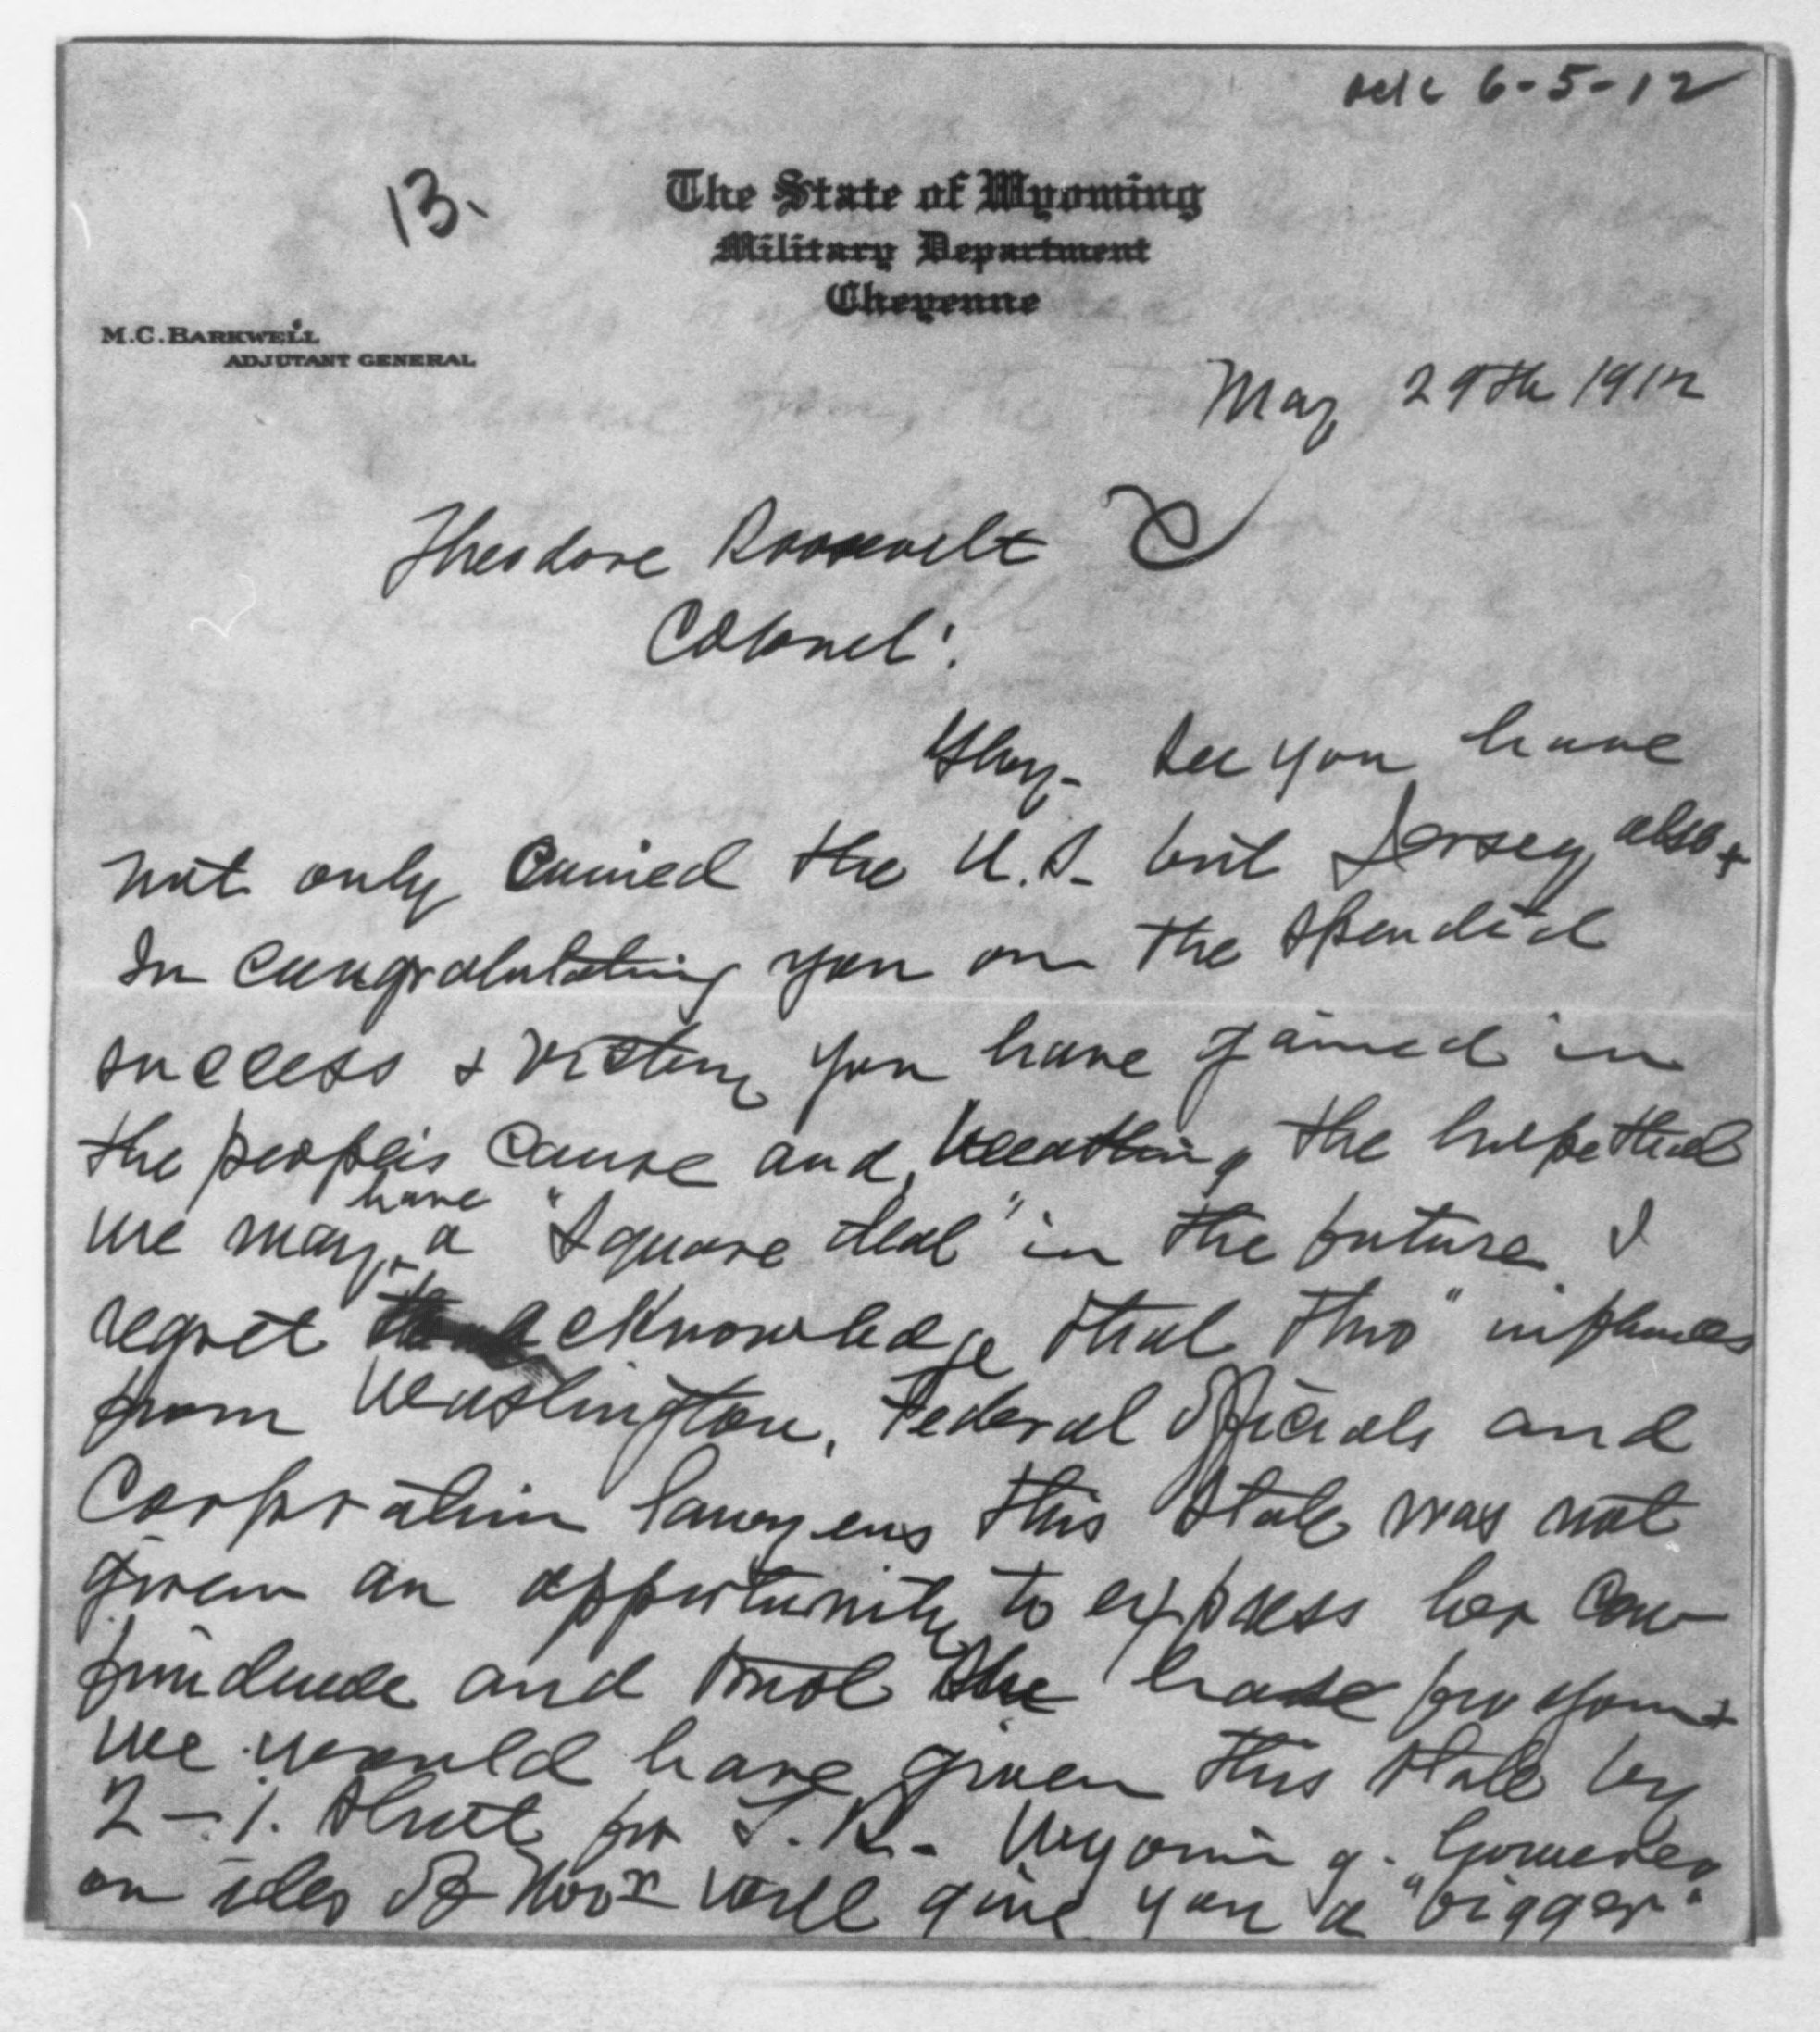 ack 6-5-12
13.
The State of Wyoming
Military Department
Cheyenne
M.C. BARKWELL
ADJUTANT GENERAL
May 29th 1912
Theodore Roosevelt
Colonel:
They see you have
not only carried the U.S. but Jersey also +
In congratulating you on the spendid
success & victory you have gained in
the people's cause and the hope that
we may have a "Square deal" in the future I
regret acknowledge that thro" influences
from Washington, Federal Officials and
Corporation lawyers this State was not
given an opportunity to express her con
findence and trust she has for you +
we would have given this State by
2 – 1. Shute for T.R. Wyoming. However
on ides of Novr will give you a "bigger"